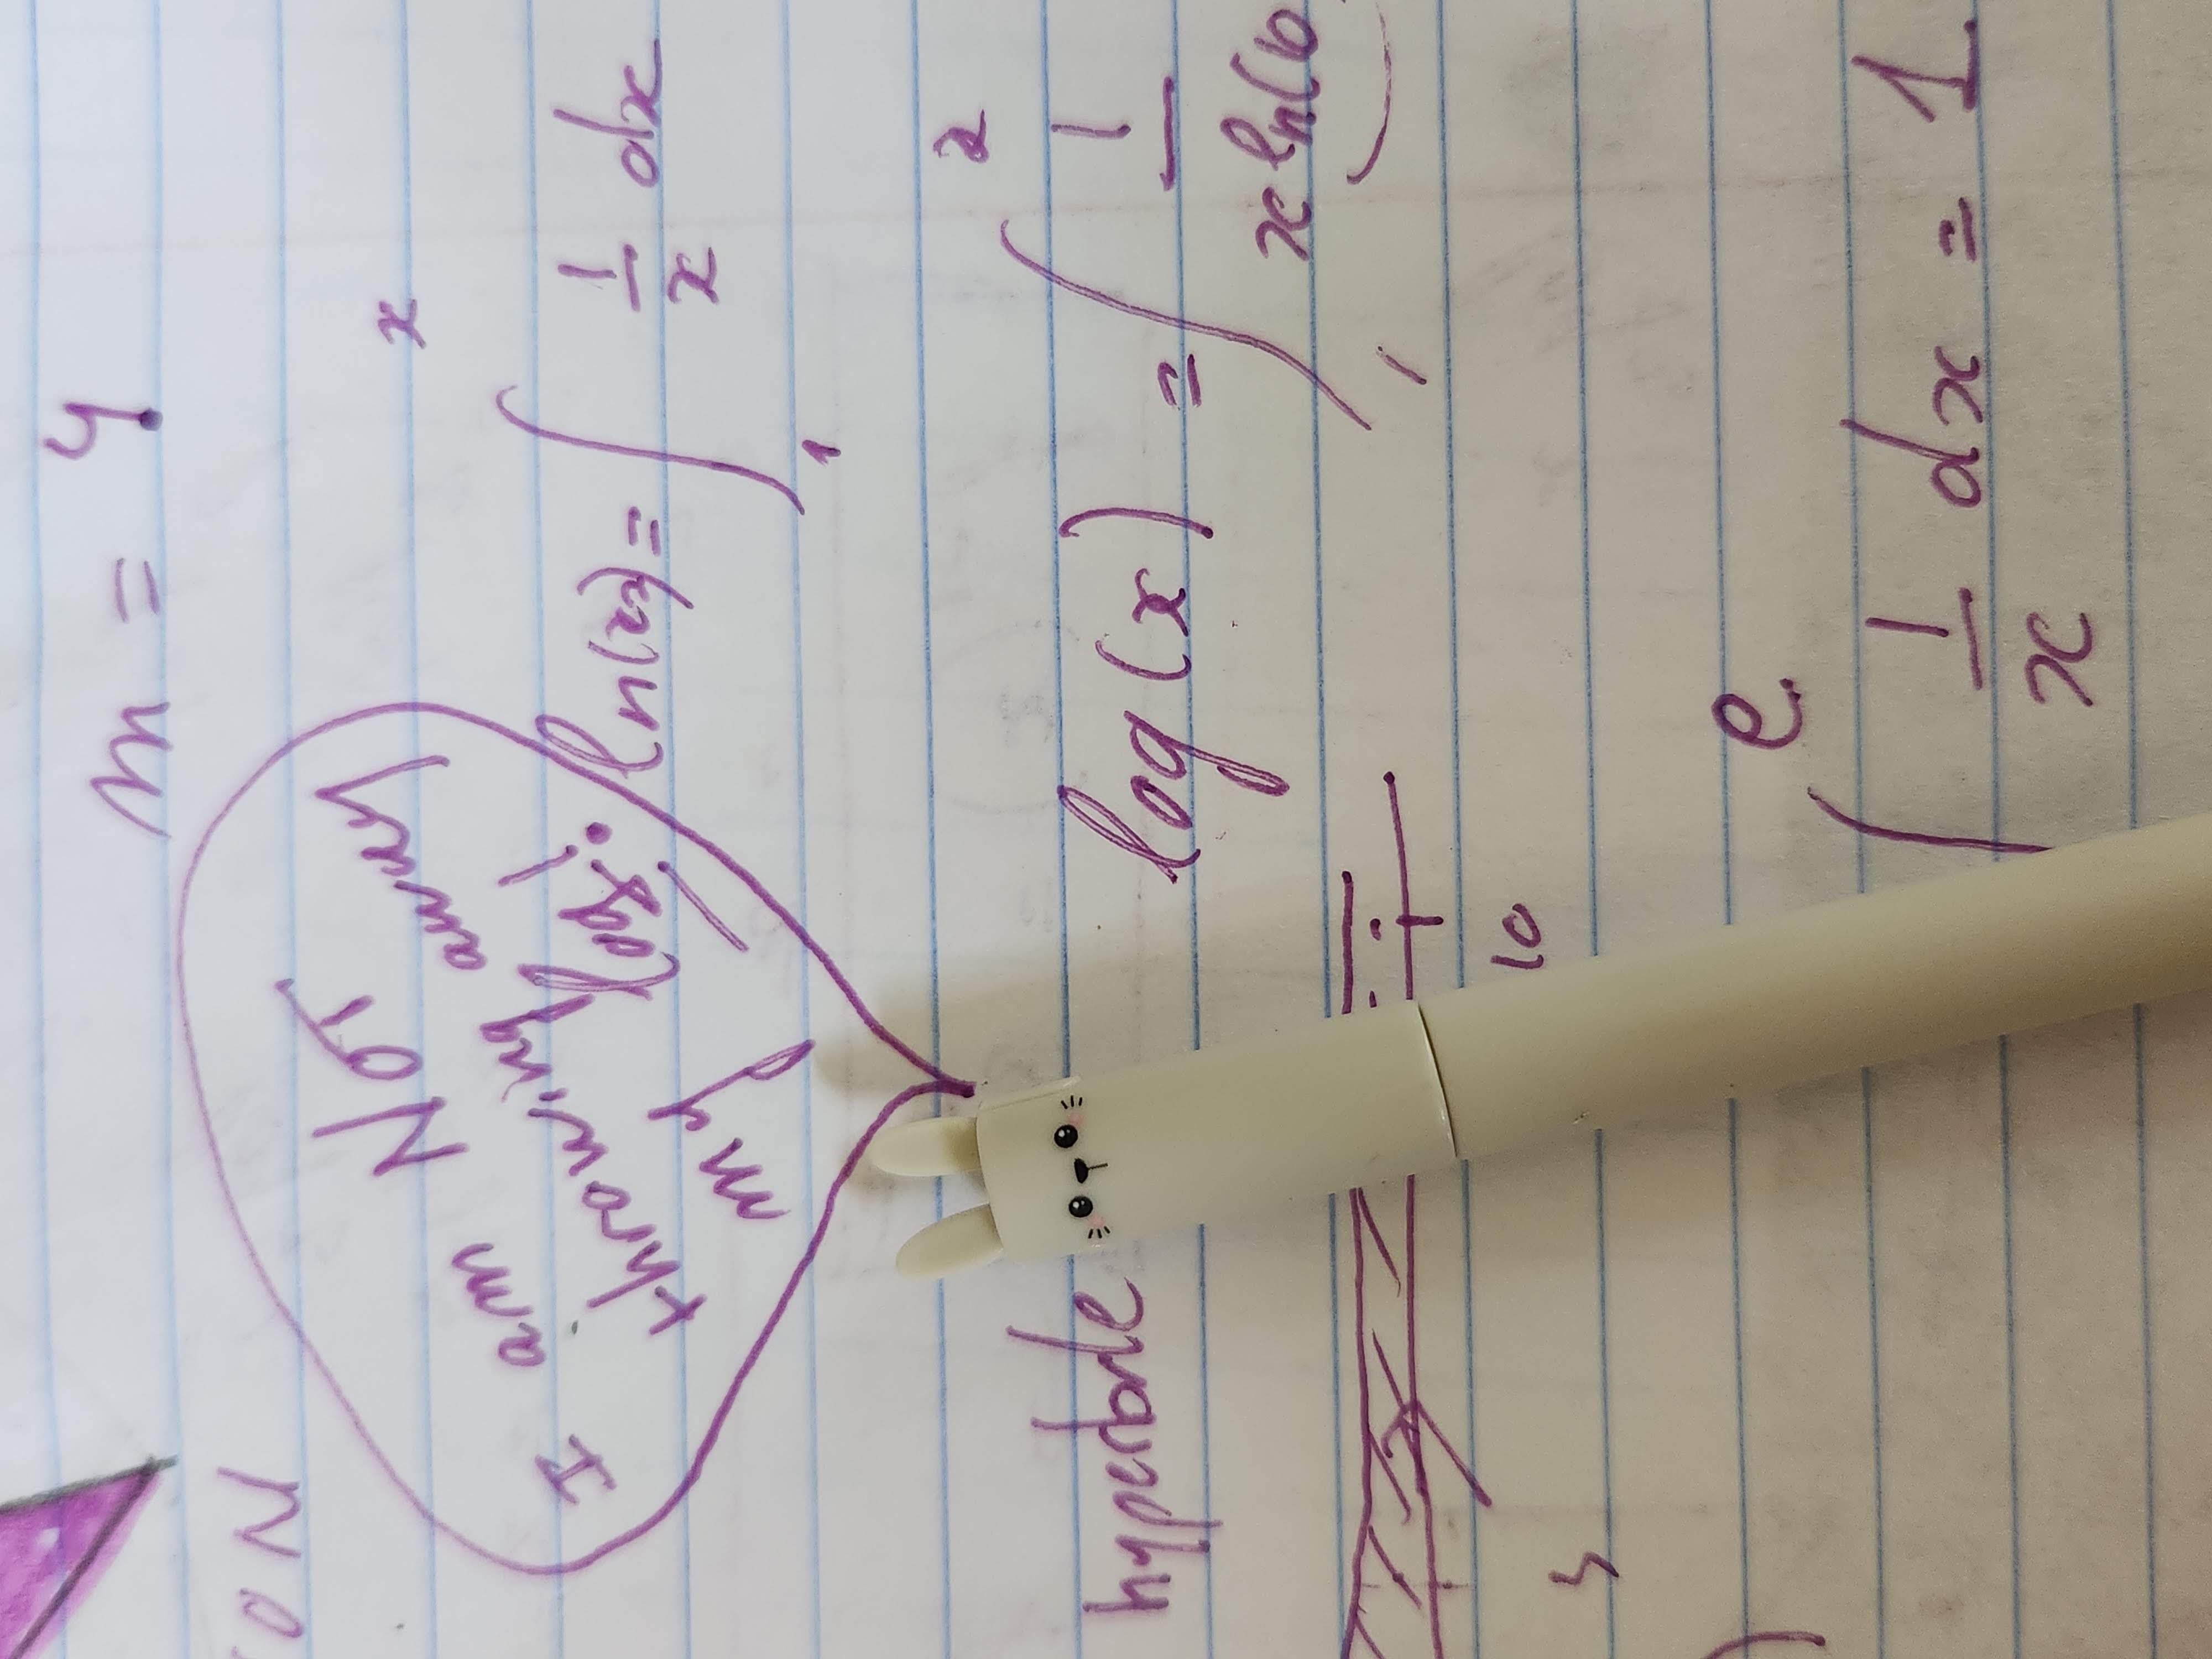 m = 4
ON
I am NOT
throwing away
my log!
x
ln(x) = ∫ 1/x dx
1
hyperbole
2
log(x) = ∫ 1/x ln(10
1
10
5
e
∫ 1/x dx = 1